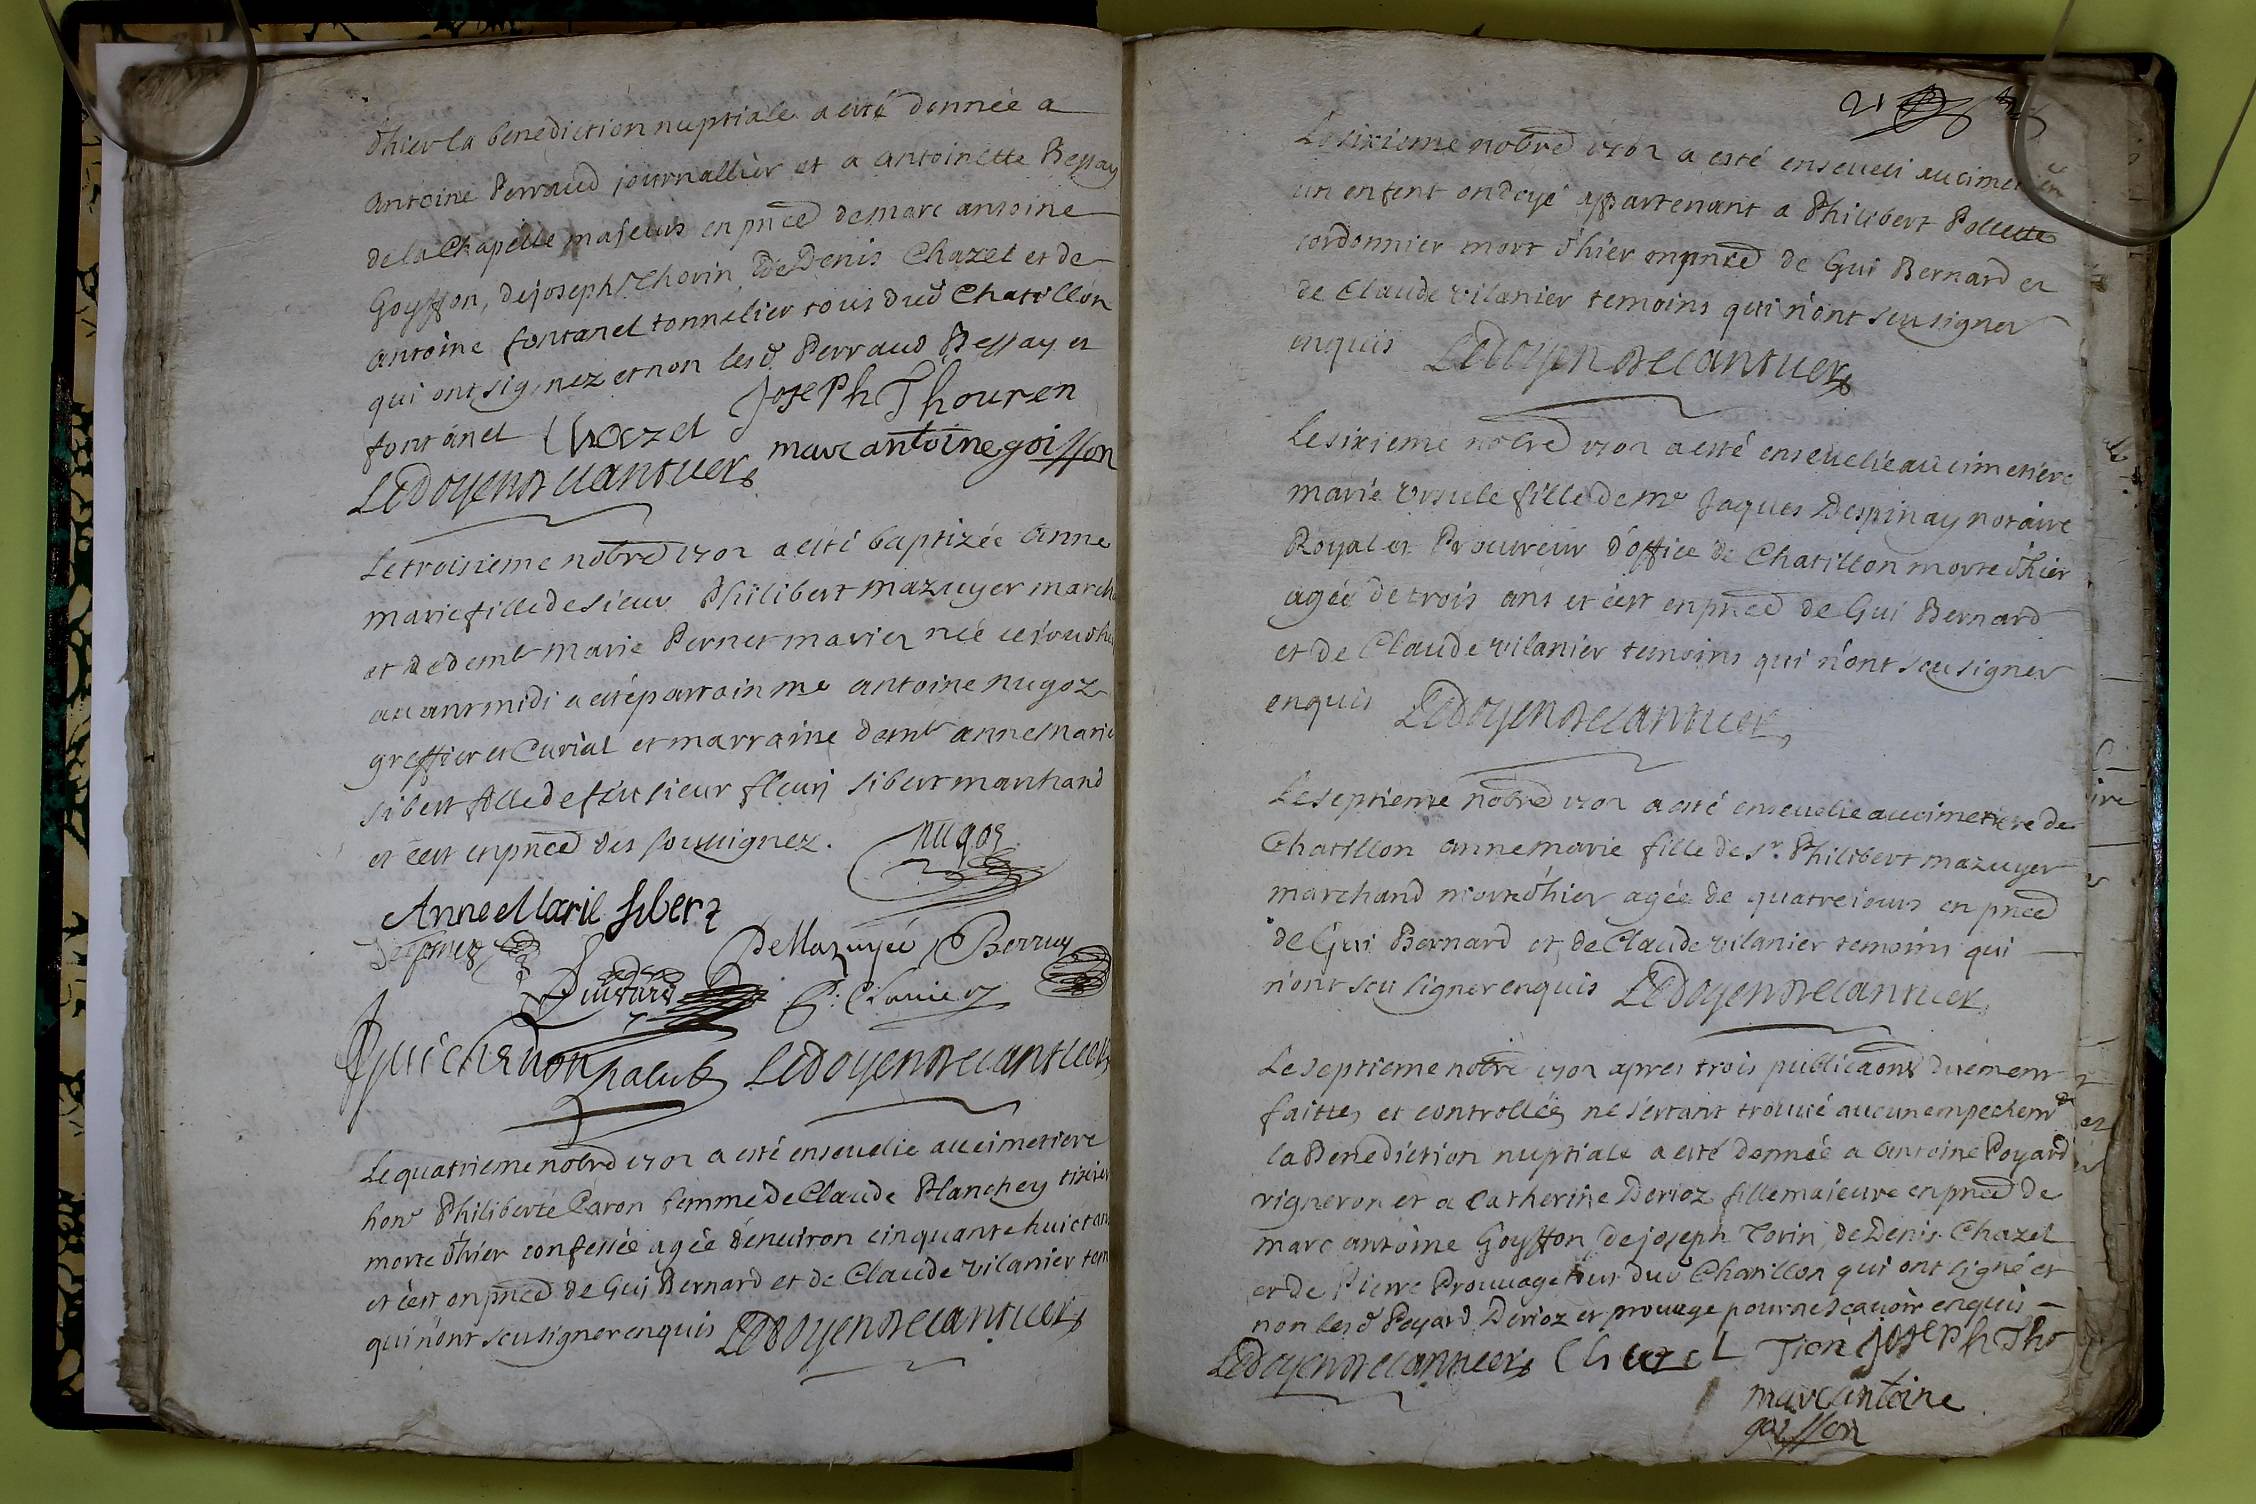 d'hier la benediction nuptiale a esté donnée a
antoine Perraud journallier et a antoinette Bessay
de la Chapelle majeurs en pnce de marc antoine
Goyffon, de joseph Thorin, de Denis Chazel et de
antoine fontanel tonnelier tous dud Chatillon
qui ont signez et non lesd Perraud Bessay et
fontanel Chazel Joseph Thouren
marc antoine goiffon
Le doyen
Le troisieme nobre 1702 a esté baptizée anne
marie fille de sieur Philibert mazuyer march
et de demle marie Perner mariez née ce jourdhui
auant midi a esté parrain me antoine nugoz
greffier et Curial et marraine demle anne marie
sibert fille de feu sieur fleuri sibert marchand
et c'est en pnce des sousignez. nugoz
Anne Marie siberz
De Mazuyée Berruy
Guichenon Le doyen
Le quatrieme nobre 1702 a esté enseuelie au cimetiere
honr Philiberte Caron femme de Claude Planchey tixier
morte d'hier confessée agée d'enuiron cinquante huict ans
et c'est en pnce de Gui Bernard et de Claude vilanier tem
qui n'ont sceu signer enquis Le doyen
21
Le sixieme nobre 1702 a esté enseueli au cimetiere
un enfent ondoyé appartenant a Philibert Pollette
cordonnier mort d'hier en pnce de Gui Bernard et
de Claude vilanier temoins qui n'ont sceu signer
enquis Le doyen
Le sixieme nobre 1702 a esté enseuelie au cimetiere
marie ursule fille de me Jaques Despinay notaire
Royal et Procureur d'office de Chatillon morte d'hier
agée de trois ans et c'est en pnce de Gui Bernard
et de Claude vilanier temoins qui n'ont sceu signer
enquis Le doyen
Le septieme nobre 1702 a esté enseuelie au cimetiere de
Chatillon anne marie fille de sr. Philibert mazuyer
marchand morte d'hier agée de quatre iours en pnce
de Gui Bernard et de Claude vilanier temoins qui
n'ont sceu signer enquis Le doyen
Le septieme nobre 1702 apres trois publicaons düement
faittes et controllées ne s'estant trouué aucun empechemt
la Benediction nuptiale a esté donnée a antoine Poyard
vigneron et a Catherine Derioz fille majeure en pnce de
marc antoine Goyffon, de joseph Torin, de Denis Chazel
et de Pierre Prouuage tous dud Chatillon qui ont signé et
non lesd Poyard Derioz et prouuage pour ne scauoir enquis
Le doyen Chazel Joseph Tho
marc antoine
goiffon